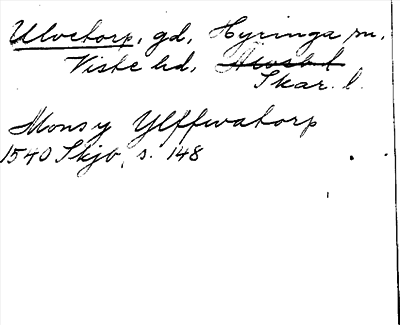 Ulvetorp, gd, Hyringa sn,
Viste hd,
Skar. l.
Monsy Ylffwatorp
1540 Skjb, s. 148